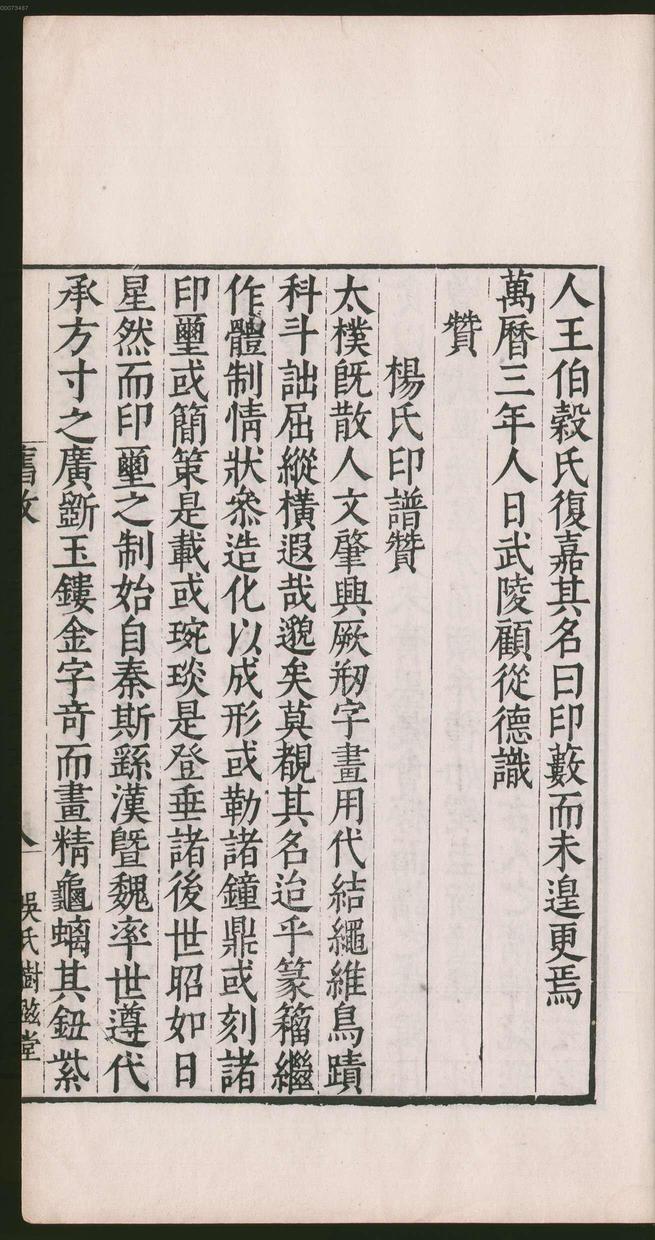 00073487
人王伯穀氏復嘉其名曰印藪而未遑更焉
萬曆三年人日武陵顧從德識
贊
楊氏印譜贊
太樸旣散人文肇興厥剏字畫用代結繩維鳥蹟
科斗詘屈縱橫遐哉邈矣莫覩其名迨乎篆籀繼
作體制情狀叅造化以成形或勒諸鐘鼎或刻諸
印璽或簡策是載或琬琰是登垂諸後世昭如日
星然而印璽之制始自秦斯繇漢曁魏率世遵代
承方寸之廣斵玉鏤金字奇而畫精龜螭其鈕紫
吳氏樹滋堂